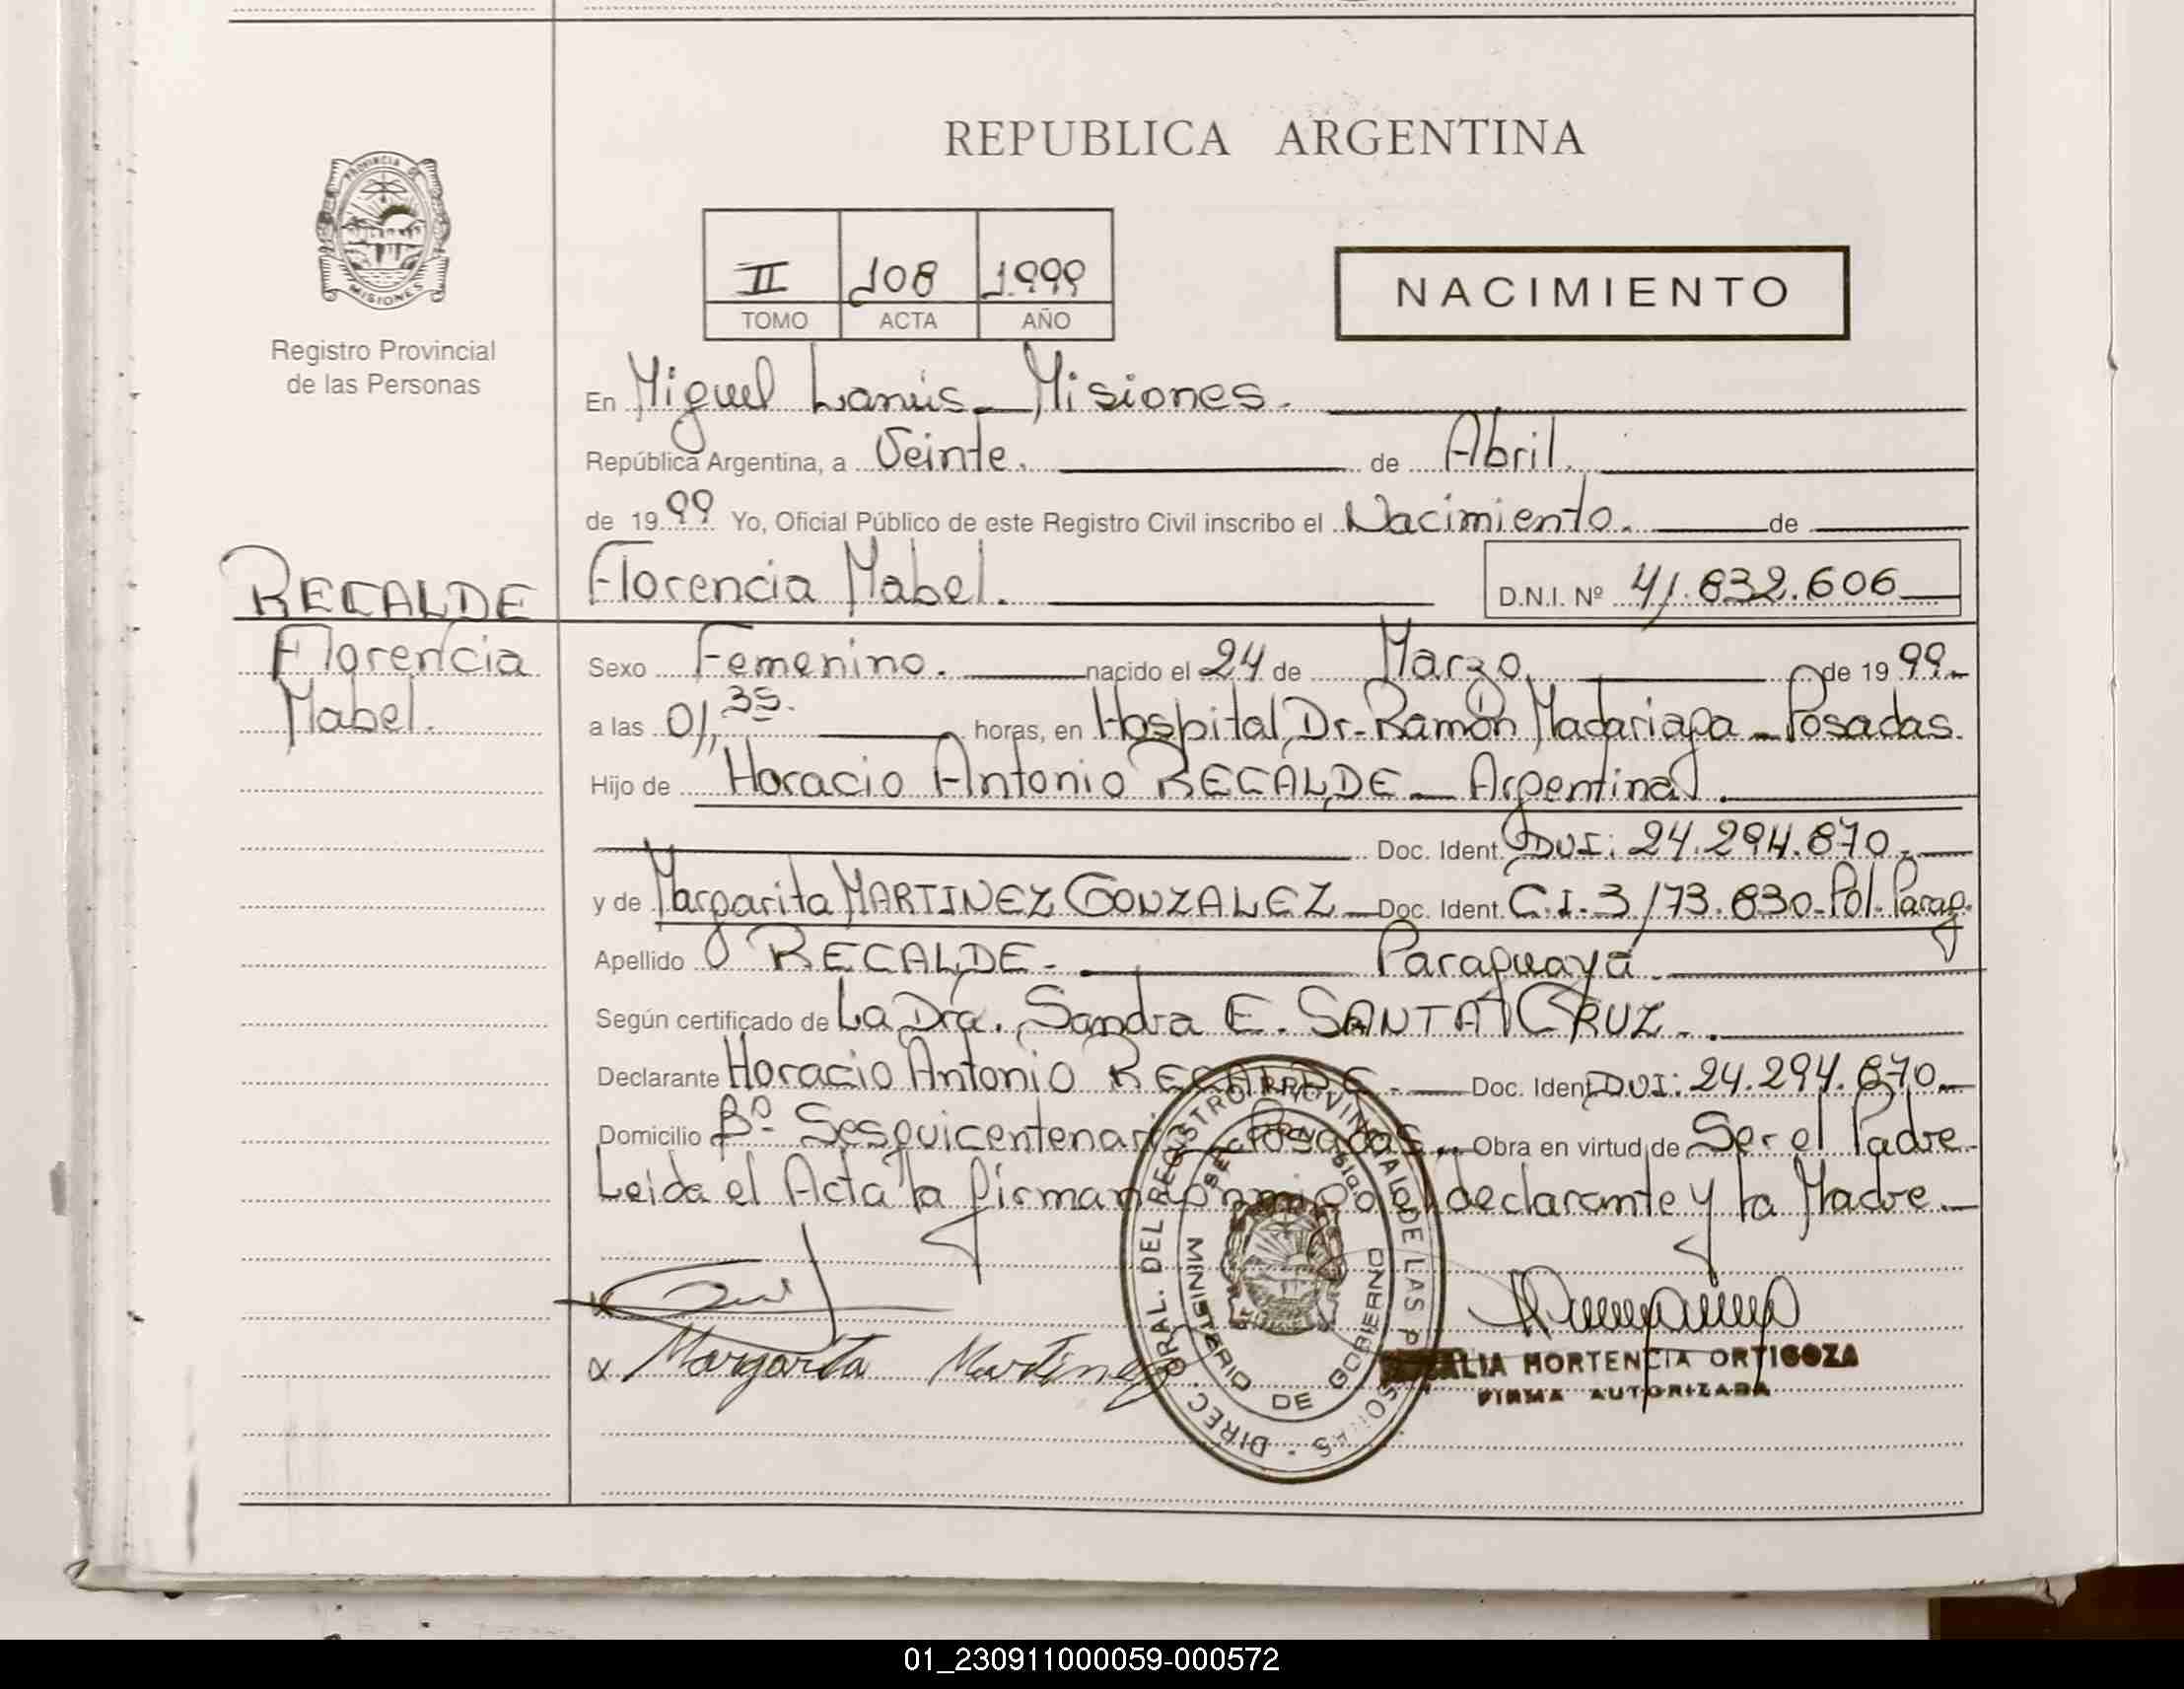 REPUBLICA ARGENTINA
PROVINCIA DE
MISIONES
Registro Provincial
de las Personas
II 108 1.999
TOMO ACTA AÑO
NACIMIENTO
En Miguel Lanús - Misiones.
República Argentina, a Veinte. de Abril.
de 1999 Yo, Oficial Público de este Registro Civil inscribo el Nacimiento. de
RECALDE
Florencia
Mabel.
Florencia Mabel. D.N.I. Nº 41.832.606
Sexo Femenino. nacido el 24 de Marzo de 1999.-
a las 01,35. horas, en Hospital Dr. Ramón Madariaga - Posadas.
Hijo de Horacio Antonio RECALDE - Argentina.
Doc. Ident. DUI: 24.294.870.-
y de Margarita MARTINEZ GONZALEZ - Doc. Ident. C.I. 3173.830-Pol. Parag.
Apellido RECALDE.- Paraguaya.
Según certificado de La Dra. Sandra E. SANTA CRUZ.-
Declarante Horacio Antonio RECALDE.- Doc. Ident. DUI: 24.294.870.-
Domicilio Bº Sesquicentenario Posadas.. Obra en virtud de Ser el Padre.
Leida el Acta la firman conmigo el declarante y la Madre.-
x
x Margarita Martinez
DIREC. GRAL. DEL REGISTRO PROVINCIAL DE LAS PERSONAS -
MINISTERIO DE GOBIERNO
HORTENCIA ORTIGOZA
FIRMA AUTORIZADA
01_230911000059-000572